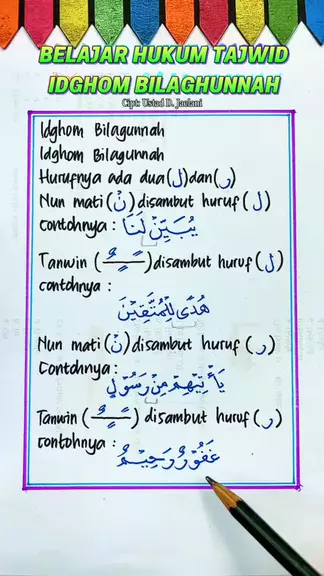 BELAJAR HUKUM TAJWID
IDGHOM BILAGHUNNAH
Cipt: Ustad D. Jaelani
Idghom Bilagunnah
Idghom Bilagunnah
Hurufnya ada dua (ل) dan (ر)
Nun mati (نْ) disambut huruf (ل)
contohnya : يُبَيِّنْ لَنَا
Tanwin (ـًـٍـٌ) disambut huruf (ل)
contohnya :
هُدًى لِلْمُتَّقِيْنَ
Nun mati (نْ) disambut huruf (ر)
Contohnya :
يَأْتِيْهِمْ مِنْ رَسُوْلٍ
Tanwin (ـًـٍـٌ) disambut huruf (ر)
contohnya :
غَفُوْرٌ رَحِيْمٌ